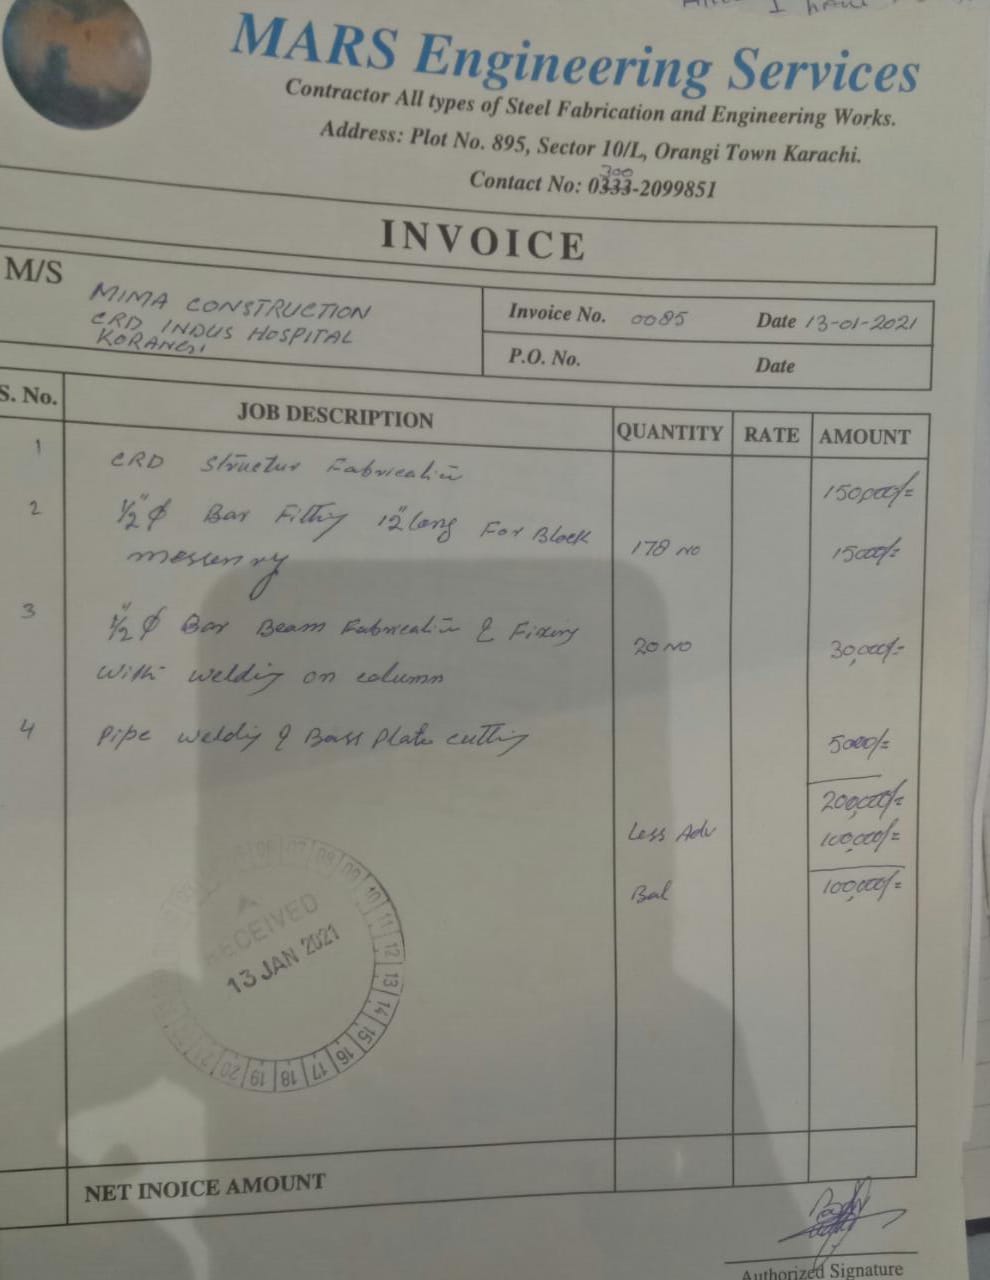 I HAVE
MARS Engineering Services
Contractor All types of Steel Fabrication and Engineering Works.
Address: Plot No. 895, Sector 10/L, Orangi Town Karachi.
300
Contact No: 0333-2099851
INVOICE
M/S
MIMA CONSTRUCTION
CRD INDUS HOSPITAL
KORANGI
Invoice No. 0085 Date 13-01-2021
P.O. No. Date
S. No. JOB DESCRIPTION QUANTITY RATE AMOUNT
1 CRD Structur Fabrication 150,000/=
2 1/2" ϕ Bar Fitting 12" long For Block 178 NO 15000/=
messenry
3 1/2" ϕ Bar Beam Fabrication & Fixing 20 NO 30,000/=
with welding on column
4 Pipe welding & Bass Plate cutting 5000/=
200,000/=
Less Adv 100,000/=
Bal 100,000/=
RECEIVED
13 JAN 2021
07 08 09 10 11 12 13 14 15 16 17 18 19 20 21
NET INOICE AMOUNT
Authorized Signature